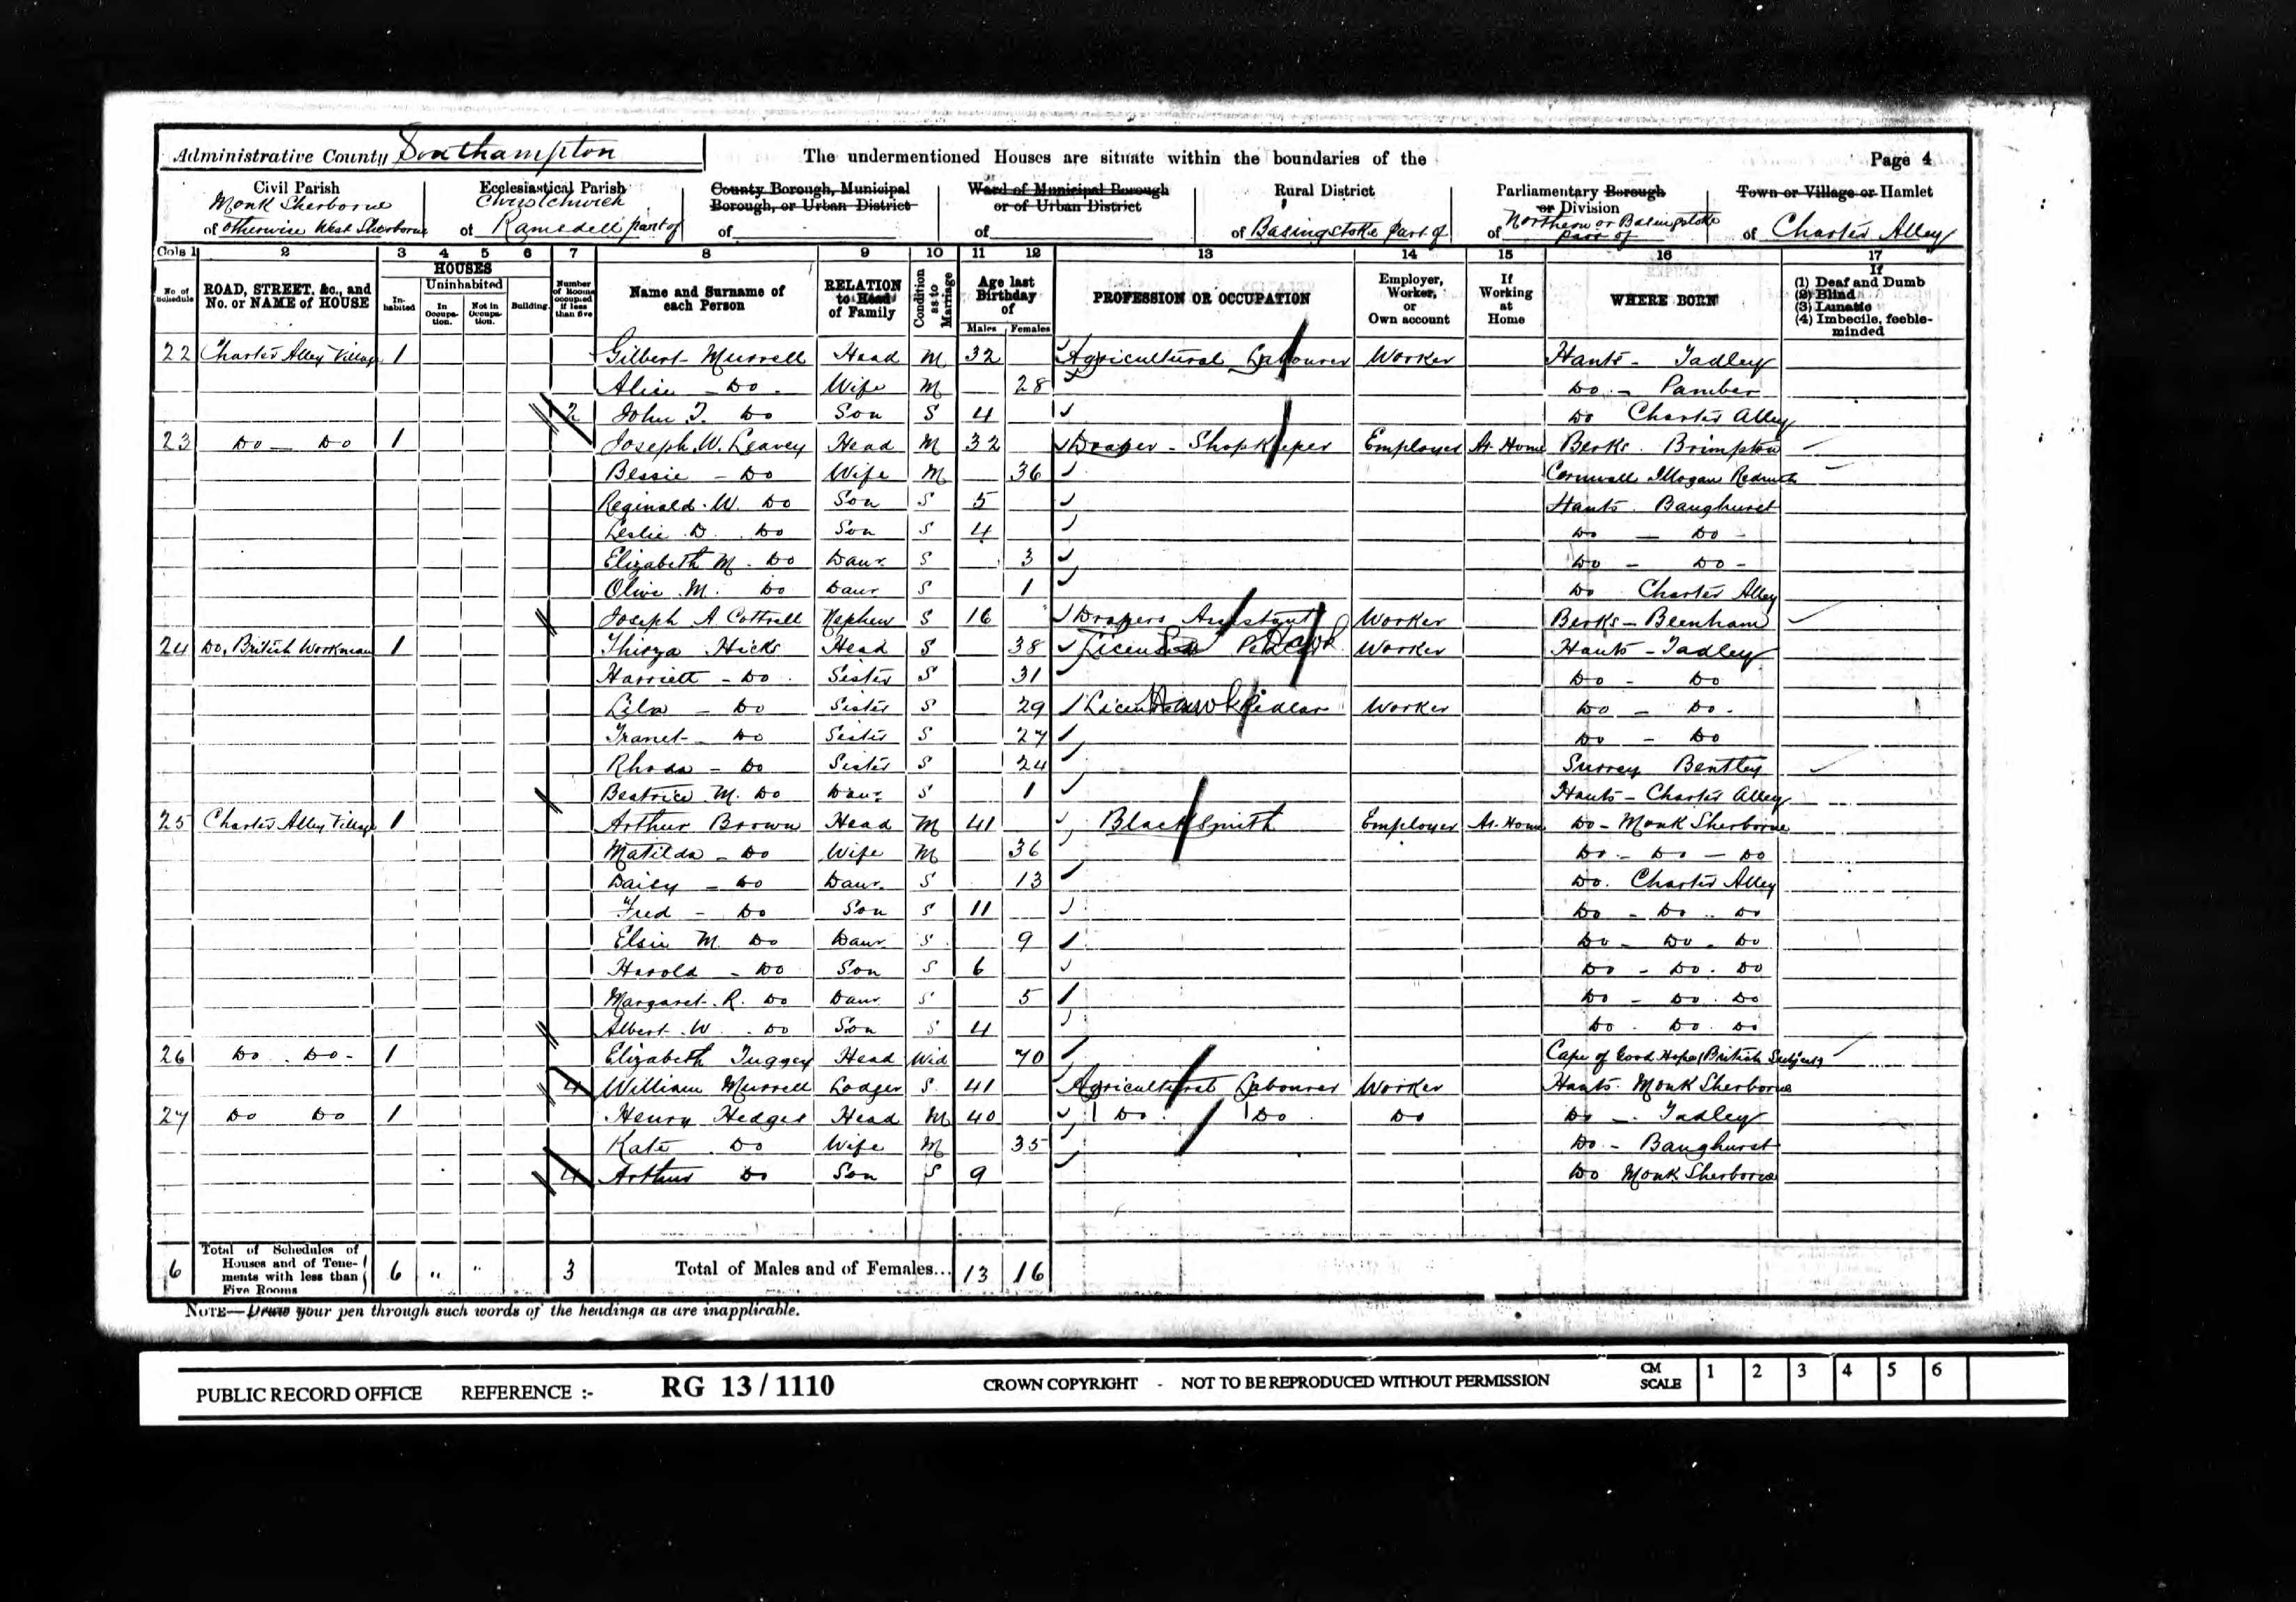 Administrative County Southampton The undermentioned Houses are situate within the boundaries of the Page 4
Civil Parish Ecclesiastical Parish County Borough, Municipal Borough, or Urban District Ward of Municipal Borough or of Urban District Rural District Parliamentary Borough or Division Town or Village or Hamlet
of Monk Sherborne otherwise West Sherborne of Christchurch Ramsdell part of of of of Basingstoke part of of Northern or Basingstoke part of of Charter Alley
Cols 1 2 3 4 5 6 7 8 9 10 11 12 13 14 15 16 17
No. of Schedule ROAD, STREET, &c., and No. or NAME of HOUSE HOUSES Inhabited Uninhabited In Occupation. Not in Occupation. Building. Number of Rooms occupied if less than five Name and Surname of each Person RELATION to Head of Family Condition as to Marriage Age last Birthday of Males Females PROFESSION OR OCCUPATION Employer, Worker, or Own account If Working at Home WHERE BORN If (1) Deaf and Dumb (2) Blind (3) Lunatic (4) Imbecile, feeble-minded
22 Charter Alley Village 1 Gilbert Murrell Head M 32 Agricultural Labourer Worker Hants - Tadley
Alice - Do Wife M 28 Do - Pamber
2 John T. Do Son S 4 Do Charter Alley
23 Do - Do 1 Joseph W. Leavey Head M 32 Draper - Shopkeeper Employer At Home Berks. Brimpton
Bessie - Do Wife M 36 Cornwall Illogan Redruth
Reginald W. Do Son S 5 Hants. Baughurst
Leslie D. Do Son S 4 Do - Do -
Elizabeth M. Do Daur. S 3 Do - Do -
Olive M. Do Daur S 1 Do Charter Alley
Joseph A Cottrell Nephew S 16 Drapers Assistant Worker Berks - Beenham
24 Do, British Workman 1 Thirza Hicks Head S 38 Licensed Hawk Worker Hants - Tadley
Harriett - Do Sister S 31 Do - Do
Lila - Do Sister S 29 Hawk Pedlar Worker Do - Do -
Do Sister S 27 Do - Do
Rhoda - Do Sister S 24 Surrey Bentley
Beatrice M. Do Daur S 1 Hants - Charter Alley
25 Charter Alley Village 1 Arthur Brown Head M 41 Blacksmith Employer At Home Do - Monk Sherborne
Matilda - Do Wife M 36 Do - Do - Do
Daisy - Do Daur. S 13 Do. Charter Alley
Fred - Do Son S 11 Do - Do - Do
Elsie M. Do Daur S 9 Do - Do - Do
Harold - Do Son S 6 Do - Do. Do
Margaret. R. Do Daur S 5 Do - Do. Do
Albert. W. Do Son S 4 Do. Do. Do
26 Do. Do- 1 Elizabeth Tuggey Head Wid 70 Cape of Good Hope (British Subject)
4 William Murrell Lodger S. 41 Agricultural Labourer Worker Hants. Monk Sherborne
27 Do Do 1 Henry Hedges Head M 40 Do. Do. Do Do -. Tadley
Kate. Do Wife M 35 Do - Baughurst
4 Arthur Do Son S 9 Do Monk Sherborne
6 Total of Schedules of Houses and of Tenements with less than Five Rooms 6 " " 3 Total of Males and of Females... 13 16
NOTE—Draw your pen through such words of the headings as are inapplicable.
PUBLIC RECORD OFFICE REFERENCE :- RG 13/1110 CROWN COPYRIGHT - NOT TO BE REPRODUCED WITHOUT PERMISSION CM SCALE 1 2 3 4 5 6